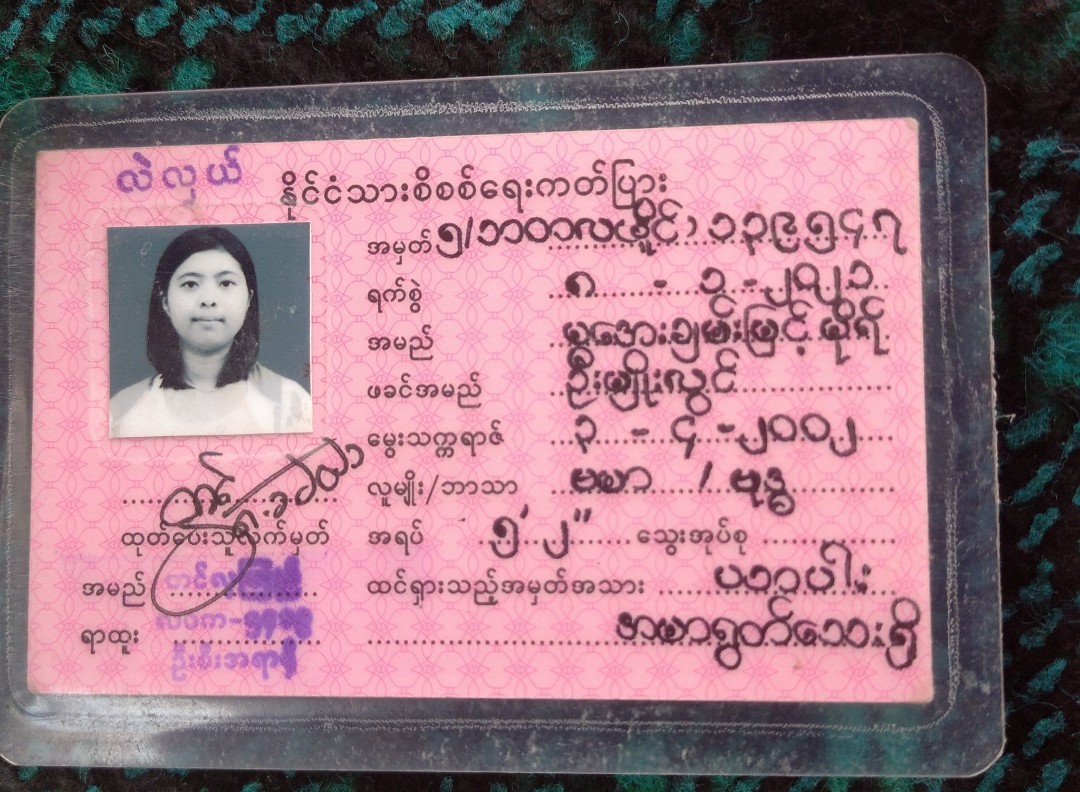 လဲလှယ်
နိုင်ငံသားစိစစ်ရေးကတ်ပြား
အမှတ် ၅/ဘတလ(နိုင်) ၁၃၉၅၄၇
ရက်စွဲ ၈ - ၁ - ၂၀၂၁
အမည် မအေးချမ်းမြင့်မိုရ်
ဖခင်အမည် ဦးမျိုးလွင်
မွေးသက္ကရာဇ် ၃ - ၄ - ၂၀၀၂
လူမျိုး/ဘာသာ ဗမာ / ဗုဒ္ဓ
အရပ် ၅' ၂" သွေးအုပ်စု
ထင်ရှားသည့်အမှတ်အသား ပါး
အမာရွတ်သေးရှိ
ထုတ်ပေးသူလက်မှတ်
အမည်
ရာထူး လဝက-
ဦးစီးအရာရှိ